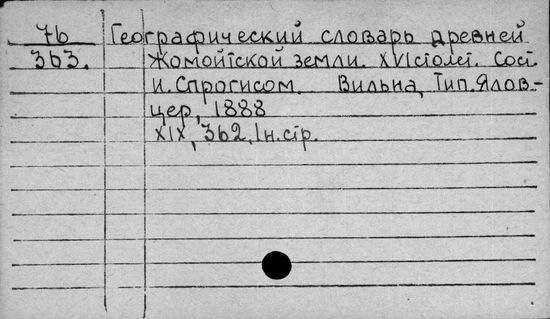 76 Географический словарь древней
363. Жомойтской земли. XVI столет. Сост.
И. Спрогисом. Вильна, Тип. Ялов-
цер, 1888
XIX, 362, 1н. стр.